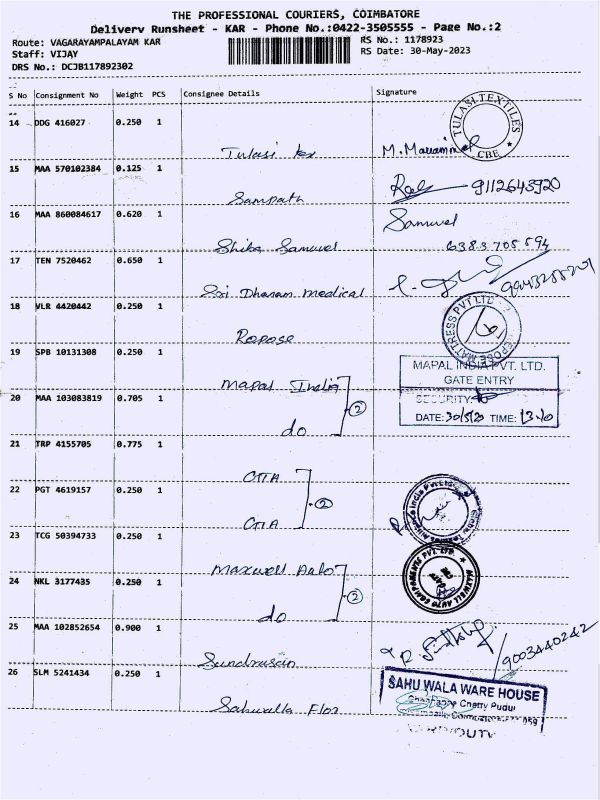 THE PROFESSIONAL COURIERS, COIMBATORE
Delivery Runsheet - KAR - Phone No.:0422-3505555 - Page No.:2
Route: VAGARAYAMPALAYAM KAR
RS No.: 1178923
Staff: VIJAY
RS Date: 30-May-2023
DRS No.: DCJB117892302
S No Consignment No Weight PCS Consignee Details Signature
14 DDG 416027 0.250 1
TULASI TEXTILES CBE
Tulasi tex
15 MAA 570102384 0.125 1
Sampath
16 MAA 860084617 0.620 1
Samuel
Shiba Samuel
17 TEN 7520462 0.650 1
Sri Dhanam Medical
18 VLR 4420442 0.250 1
Repose
REPOSE MATTRESS PVT LTD
19 SPB 10131308 0.250 1
Mapal India
MAPAL INDIA PVT. LTD.
GATE ENTRY
20 MAA 103083819 0.705 1
2
SECURITY:
do
DATE: TIME:
21 TRP 4155705 0.775 1
GTTA
22 PGT 4619157 0.250 1
2
GTTA
23 TCG 50394733 0.250 1
Maxwell Auto
MAXWELL AUTO COMPONENTS PVT. LTD.
24 NKL 3177435 0.250 1
2
do
25 MAA 102852654 0.900 1
9003440242
26 SLM 5241434 0.250 1
SAHU WALA WARE HOUSE
Chetty Pudur